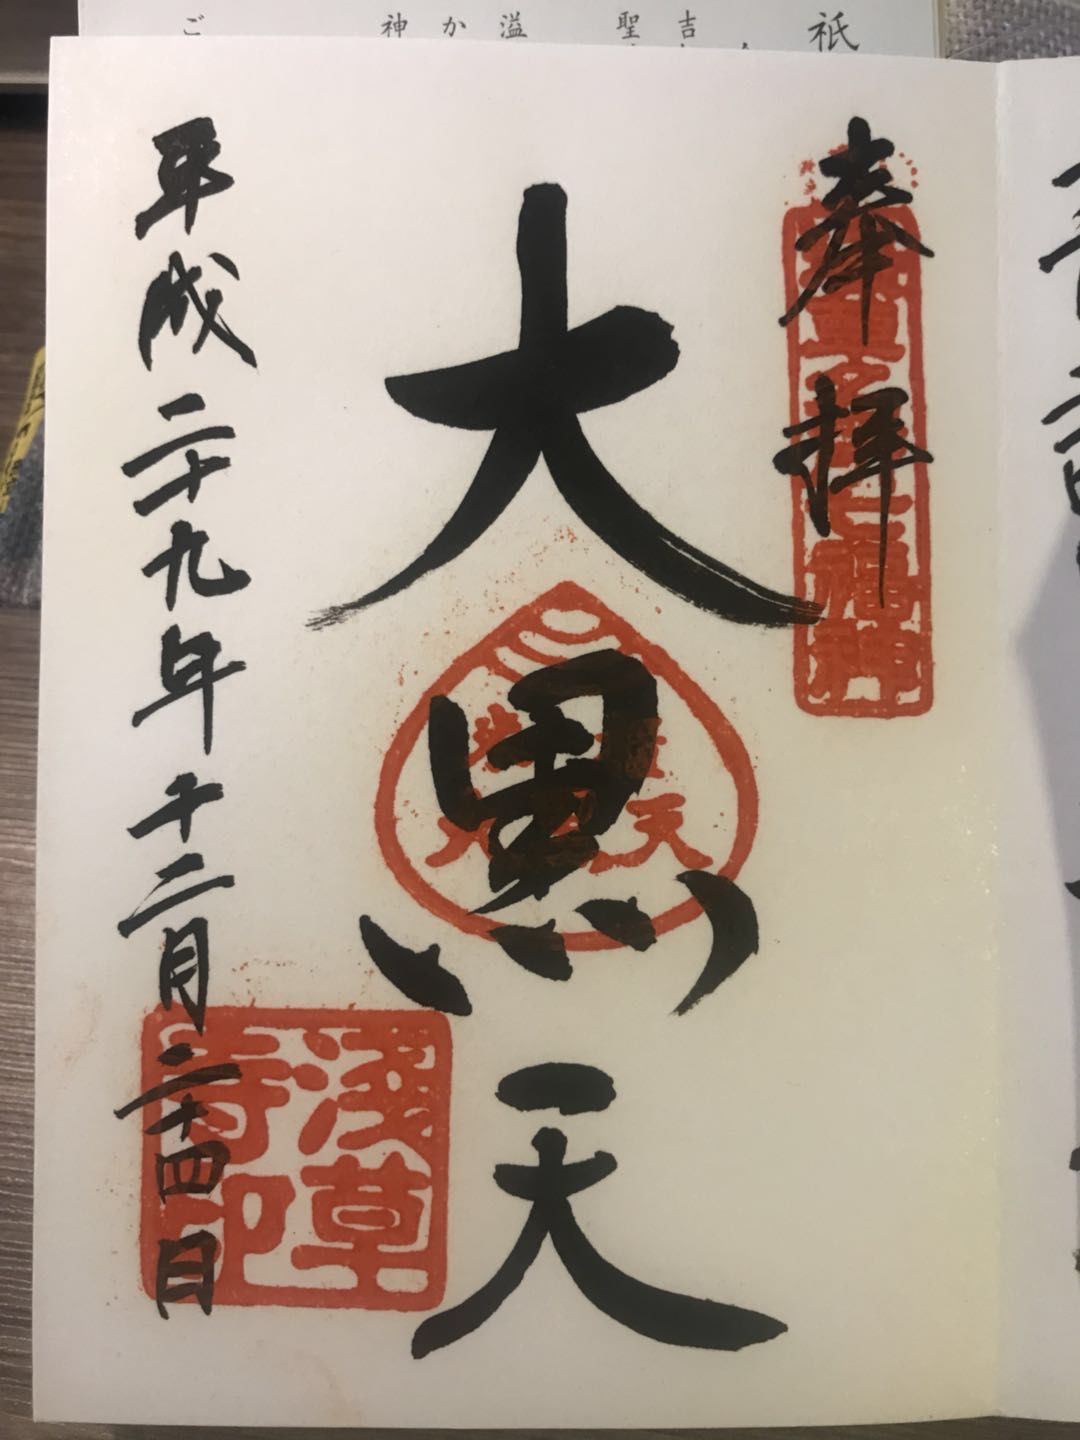 祇
吉
聖
溢
か
神
ご
奉拝
大黒天
平成二十九年十二月二十四日
浅草
寺印
七福神
天